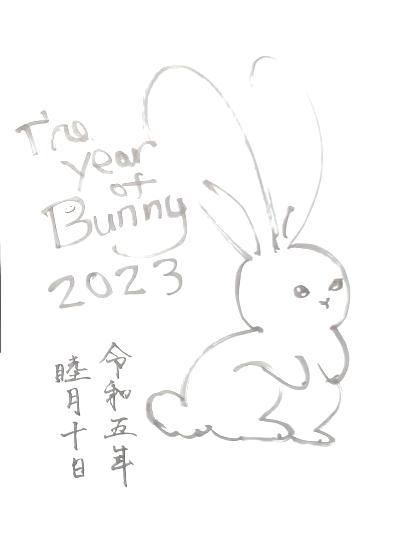 The
year
of
Bunny
2023
令和五年
睦月十日